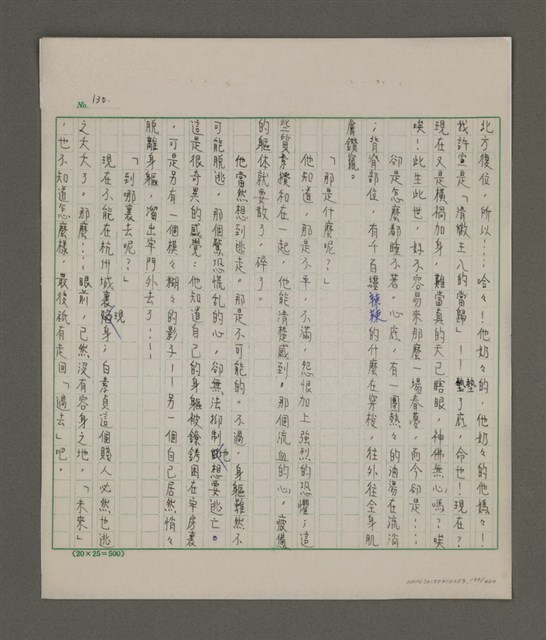 No. 130.
北方復位，所以……哈々！他奶々的，他奶々的他媽々！
我許宣是「清燉王八的當歸」！！墊了底，命也！現在？
現在又是橫禍加身，難當真的天已瞎眼，神佛無心嗎？唉
唉！此生此世，好不容易來那麼一場春夢，而今卻是……
　卻是怎麼都睡不著。心底，有一團熱々的滴湯在流淌
；背脊部位，有千百纓鞭鞭的什麼在穿梭，往外往全身肌
膚鑽竄。
　「那是什麼呢？」
　他知道，那是不平，不滿，怨恨加上強烈的恐懼；這
些質素攪和在一起，他能清楚感到，那個流血的心，疲憊
的軀体就要散了，碎了。
　他當然想到逃走。那是不可能的。不過，身軀雖然不
可能脫逃，那個驚恐慌乱的心，卻無法抑制他想要逃亡。
這是很奇異的感覺：他知道自己的身軀被鐐銬困在牢房裏
，可是另有一個模々糊々的影子——另一個自己居然悄々
脫離身軀，溜出牢門外去了……
　「到哪裏去呢？」
　現在不能在杭州城裏現身；白素貞這個賤人必然也逃
之夭夭了。那麼……眼前，已然沒有容身之地，「未來」
，也不知道怎麼樣，最後祇有走回「過去」吧。
(20×25=500)